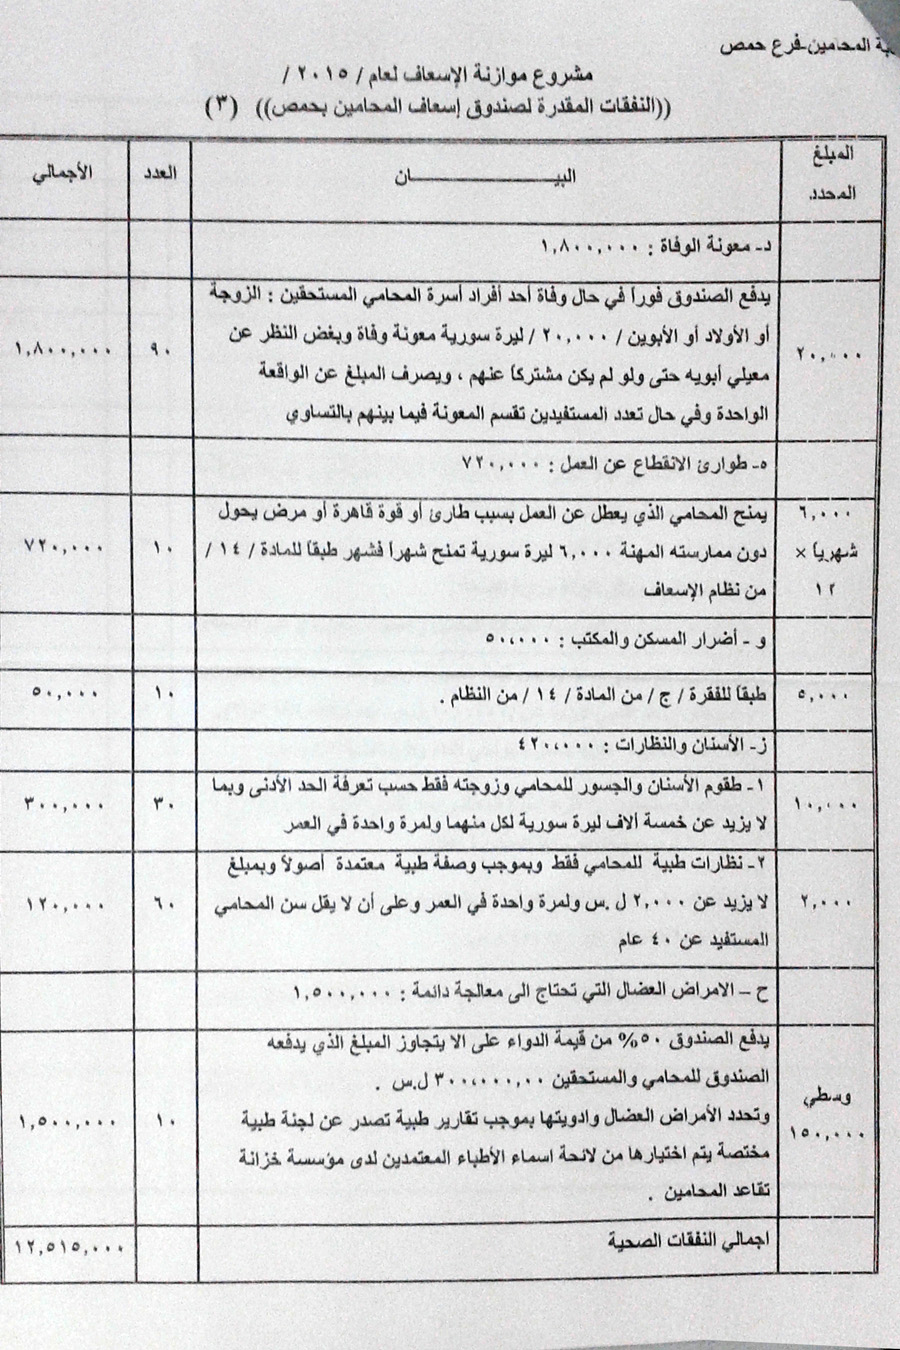 المحامين-فرع حمص
مشروع موازنة الإسعاف لعام / ٢٠١٥ /
((النفقات المقدرة لصندوق إسعاف المحامين بحمص)) (٣)
المبلغ المحدد البيـــــــــــــان العدد الأجمالي
د- معونة الوفاة : ١,٨٠٠,٠٠٠
يدفع الصندوق فوراً في حال وفاة أحد أفراد أسرة المحامي المستحقين : الزوجة
أو الأولاد أو الأبوين / ٢٠,٠٠٠ / ليرة سورية معونة وفاة وبغض النظر عن
٢٠,٠٠٠ ٩٠ ١,٨٠٠,٠٠٠
معيلي أبويه حتى ولو لم يكن مشتركاً عنهم ، ويصرف المبلغ عن الواقعة
الواحدة وفي حال تعدد المستفيدين تقسم المعونة فيما بينهم بالتساوي
ه- طوارئ الانقطاع عن العمل : ٧٢٠,٠٠٠
٦,٠٠٠ يمنح المحامي الذي يعطل عن العمل بسبب طارئ أو قوة قاهرة أو مرض يحول
شهرياً × دون ممارسته المهنة ٦,٠٠٠ ليرة سورية تمنح شهراً فشهر طبقاً للمادة / ١٤ / ١٠ ٧٢٠,٠٠٠
١٢ من نظام الإسعاف
و - أضرار المسكن والمكتب : ٥٠,٠٠٠
٥,٠٠٠ طبقاً للفقرة / ج / من المادة / ١٤ / من النظام . ١٠ ٥٠,٠٠٠
ز- الأسنان والنظارات : ٤٢٠,٠٠٠
١- طقوم الأسنان والجسور للمحامي وزوجته فقط حسب تعرفة الحد الأدنى وبما
١٠,٠٠٠ ٣٠ ٣٠٠,٠٠٠
لا يزيد عن خمسة ألاف ليرة سورية لكل منهما ولمرة واحدة في العمر
٢- نظارات طبية للمحامي فقط وبموجب وصفة طبية معتمدة أصولاً وبمبلغ
٢,٠٠٠ لا يزيد عن ٢,٠٠٠ ل .س ولمرة واحدة في العمر وعلى أن لا يقل سن المحامي ٦٠ ١٢٠,٠٠٠
المستفيد عن ٤٠ عام
ح – الامراض العضال التي تحتاج الى معالجة دائمة : ١,٥٠٠,٠٠٠
يدفع الصندوق ٥٠% من قيمة الدواء على الا يتجاوز المبلغ الذي يدفعه
الصندوق للمحامي والمستحقين ٣٠٠,٠٠٠,٠٠ ل.س .
وسطي
وتحدد الأمراض العضال وادويتها بموجب تقارير طبية تصدر عن لجنة طبية ١٠ ١,٥٠٠,٠٠٠
١٥٠,٠٠٠
مختصة يتم اختيارها من لائحة اسماء الأطباء المعتمدين لدى مؤسسة خزانة
تقاعد المحامين .
اجمالي النفقات الصحية ١٢,٥١٥,٠٠٠